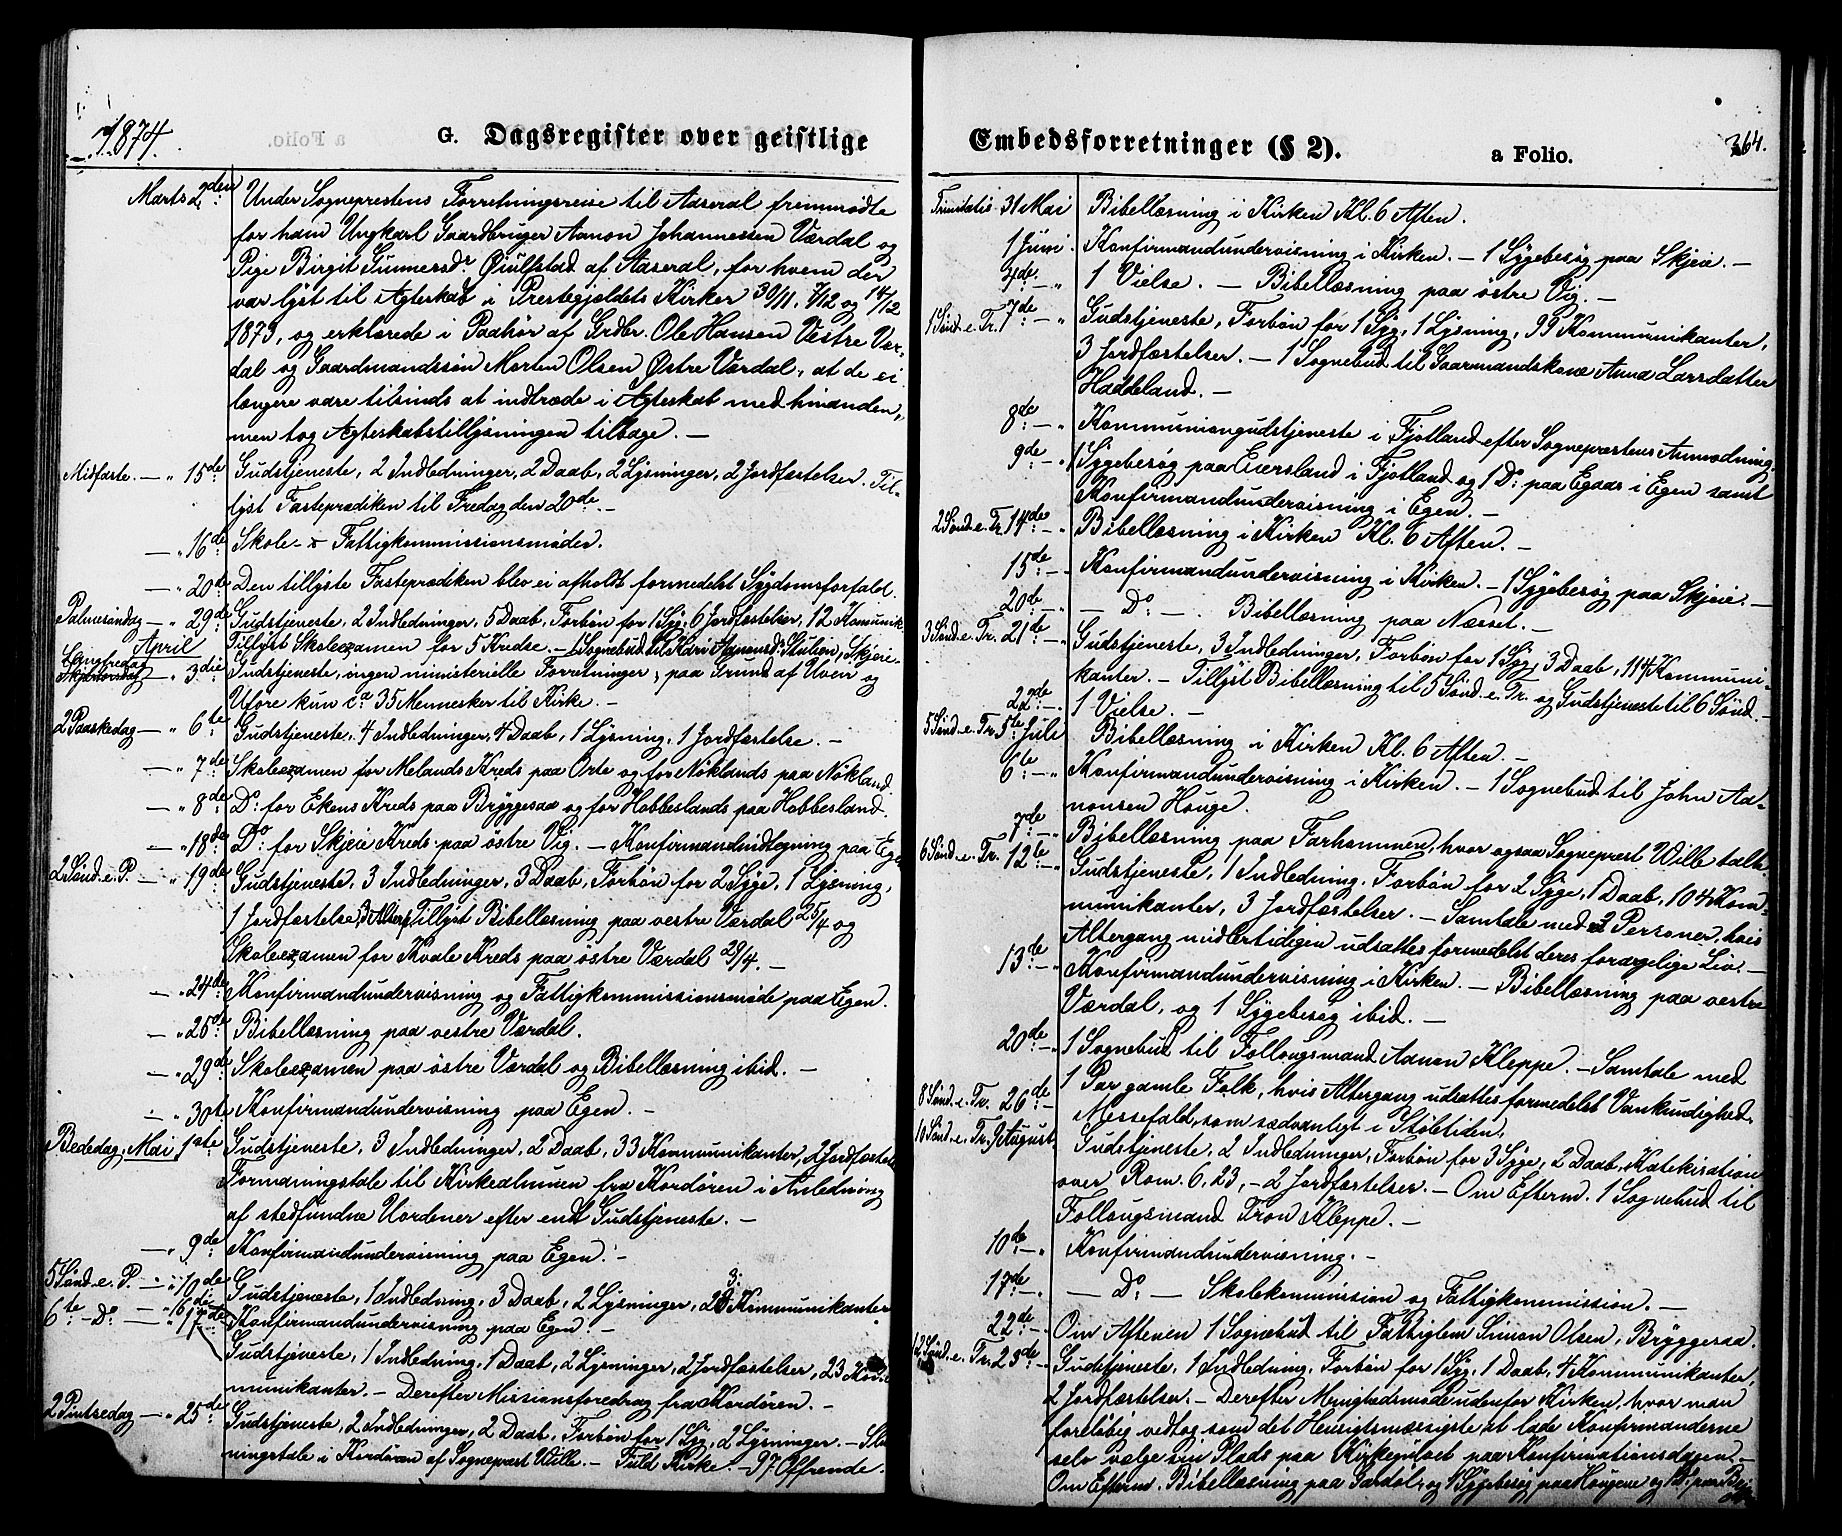 1874.
G. Dagsregister over geistlige
Marts 2den Under Sogneprestens Forretningsreise til Aaseral fremmødte
for ham Ungkarl Gaardbruger Aanon Johannessen Værdal og
Pige Birgit Gunnersdr Øiulfstad af Aaseral, for hvem der
var lyst til Ægteskab i Prestegjeldets Kirker 30/11, 7/12 og 14/12
1873, og erklærede i Paahør af Grdbr. Ole Hansen Vestre Vær-
dal og Gaardmandssøn Morten Olsen Østre Værdal, at de ei
længere vare tilsinds at indtræde i Ægteskab med hinanden,
men tog Ægteskabstillysningen tilbage. —
Midfaste. — " 15de Gudstjeneste, 2 Indledninger, 2 Daab, 2 Lysninger, 2 Jordfæstelser. Til-
lyst Fasteprædiken til Fredag den 20de. —
— " 16de Skole- & Fattigkommissionsmøder.
— " 20de Den tillyste Fasteprædiken blev ei afholdt formedelst Sygdomsforfald.
Palmesøndag — " 29de Gudstjeneste, 2 Indledninger, 5 Daab, Forbøn for 1 Syg, 6 Jordfæstelser, 12 Komunik.
April Tillyst Skoleexamen for 5 Kredse. — 1 Sognebud til Kari Aanonsdr Stulien, Skjeie.
Langfredag
Skjærtorsdag — " 3die Gudstjeneste, ingen ministerielle Forretninger, paa Grund af Uveir og
Uføre kun ca 35 Mennesker til Kirke. —
2 Paaskedag — " 6te Gudstjeneste, 4 Indledninger, 4 Daab, 1 Lysning, 1 Jordfæstelse. —
— " 7de Skoleexamen for Melands Kreds paa Orte og for Nøklands paa Nøkland.
— " 8de Do: for Ekens Kreds paa Bryggesaa og for Hobbeslands paa Hobbesland.
— " 18de Do for Skjeie Kreds paa østre Vig. — Konfirmandudlegning paa Egen
2 Sønd. e. P. — " 19de Gudstjeneste, 3 Indledninger, 3 Daab, Forbøn for 2 Syge, 1 Lysning,
1 Jordfæstelse, 3 Alterg. Tillyst Bibellæsning paa vestre Værdal 25/4 og
Skoleexamen for Kvale Kreds paa østre Værdal 29/4. —
— " 24de Konfirmandundervisning og Fattigkommissionsmøde paa Egen.
— " 25de Bibellæsning paa vestre Værdal.
— " 29de Skoleexamen paa østre Værdal og Bibellæsning ibid. —
— " 30te Konfirmandundervisning paa Egen. —
Bededag, Mai 1ste Gudstjeneste, 3 Indledninger, 2 Daab, 33 Kommunikanter, 2 Jordfæstels.
Formaningstale til Kirkealmuen fra Kordøren i Anledning
af stedfundne Uordener efter endt Gudstjeneste. —
— " 9de Konfirmandundervisning paa Egen. —
5 Sønd. e. P. — " 10de Gudstjeneste, 1 Indledning, 3 Daab, 2 Lysninger, 23 Kommunikanter
6te — Do — " 16de Konfirmandundervisning paa Egen. —
" 17de Gudstjeneste, 1 Indledning, 1 Daab, 2 Lysninger, 2 Jordfæstelser, 23 Kom-
munikanter. — Derefter Missionsforedrag fra Kordøren. —
2 Pintsedag — " 25de Gudstjeneste, 2 Indledninger, 2 Daab, Forbøn for 1 Syg, 2 Lysninger. —
ningstale i Kordøren af Sogneprest Wille. — Fuld Kirke. — 97 Offrende.
Embedsforretninger (§ 2).
a Folio.
364.
Trinitatis 31 Mai Bibellæsning i Kirken Kl. 6 Aften.
1 Juni. Konfirmandundervisning i Kirken. — 1 Sygebesøg paa Skjeie. —
— " 1 Vielse. — Bibellæsning paa østre Vig. —
1 Sønd. e. Tr. 7de — " Gudstjeneste, Forbøn for 1 Syg, 1 Lysning, 99 Kommunikanter,
3 Jordfæstelser. — 1 Sognebud til Gaarmandskone Anna Larsdatter
Haddeland. —
8de — " Kommuniongudstjeneste i Fjotland efter Sogneprestens Anmodning.
9de — " 1 Sygebesøg paa Eiersland i Fjotland og 1 Do: paa Egaas i Egen samt
Konfirmandundervisning i Egen. —
2 Sønd. e. Tr. 14de — Bibellæsning i Kirken Kl. 6 Aften. —
15de — " Konfirmandundervisning i Kirken. — 1 Sygebesøg paa Skjeie. —
20de — " — Do — . Bibellæsning paa Næsset. —
3 Sønd. e. Tr. 21de — " Gudstjeneste, 3 Indledninger, Forbøn for 1 Syg, 3 Daab, 114 Kommuni-
kanter. — Tillyst Bibellæsning til 5 Sønd. e. Tr. og Gudstjeneste til 6 Sønd. —
22de — " 1 Vielse. —
5 Sønd. e. Tr. 5te Juli Bibellæsning i Kirken Kl. 6 Aften. —
6te — " Konfirmandundervisning i Kirken. — 1 Sognebud til John Aa-
nonsen Houge.
7de — " Bibellæsning paa Farhommen, hvor ogsaa Sogneprest Wille talte.
6 Sønd. e. Tr. 12te — " Gudstjeneste, 1 Indledning, Forbøn for 2 Syge, 1 Daab, 104 Kom-
munikanter, 3 Jordfæstelser. — Samtale med 2 Personer, hvis
Altergang midlertidigen udsattes formedelst deres forargelige Liv. —
13de — " Konfirmandundervisning i Kirken. — Bibellæsning paa vestre
Værdal, og 1 Sygebesøg ibid. —
20de — " 1 Sognebud til Follougsmand Aanon Kleppe. — Samtale med
1 Par gamle Folk, hvis Altergang udsattes formedelst Vankundighed.
8 Sønd. e. Tr. 26de — Messefald, som sædvanligt i Støltiden,
10 Sønd. e. Tr. 9 August Gudstjeneste, 2 Indledninger, Forbøn for 3 Syge, 2 Daab, Katekisation
over Rom. 6, 23, — 2 Jordfæstelser. — Om Efterm. 1 Sognebud til
Follougsmand Tron Kleppe. —
10de — " Konfirmandundervisning. —
17de — " — Do: — Skolekommission og Fattigkommission. —
22de — " Om Aftenen 1 Sognebud til Fattiglem Simon Olsen, Bryggesaa.
12 Sønd. e. Tr. 23de — Gudstjeneste, 1 Indledning, Forbøn for 1 Syg, 1 Daab, 4 Kommunikanter,
2 Jordfæstelser. — Derefter Menighedsmøde udenfor Kirken, hvor man
foreløbig vedtog som det Hensigtsmæssigste at lade Konfirmanderne
selv vælge sin Plads paa Kirkegulvet paa Konfirmationsdagen. —
Om Efterm. Bibellæsning paa Gardøl, og 1 Sygebesøg paa Hougene og 1 Do: paa